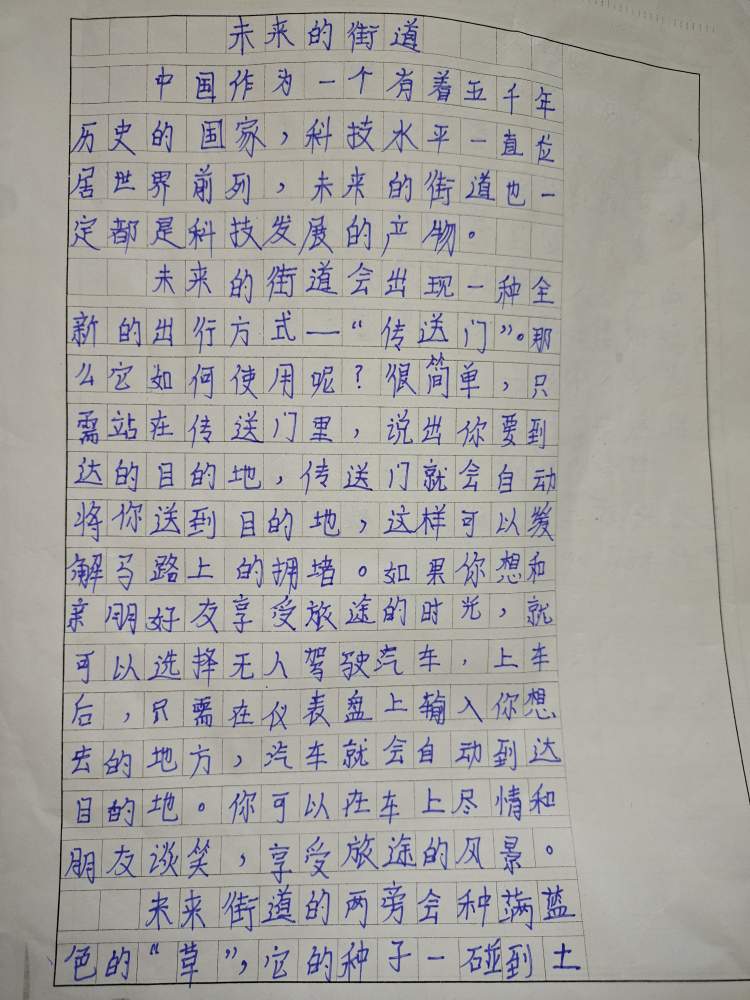 未来的街道
中国作为一个有着五千年
历史的国家，科技水平一直位
居世界前列，未来的街道也一
定都是科技发展的产物。
未来的街道会出现一种全
新的出行方式—“传送门”。那
么它如何使用呢？很简单，只
需站在传送门里，说出你要到
达的目的地，传送门就会自动
将你送到目的地，这样可以缓
解马路上的拥堵。如果你想和
亲朋好友享受旅途的时光，就
可以选择无人驾驶汽车，上车
后，只需在仪表盘上输入你想
去的地方，汽车就会自动到达
目的地。你可以在车上尽情和
朋友谈笑，享受旅途的风景。
未来街道的两旁会种满蓝
色的“草”，它的种子一碰到土